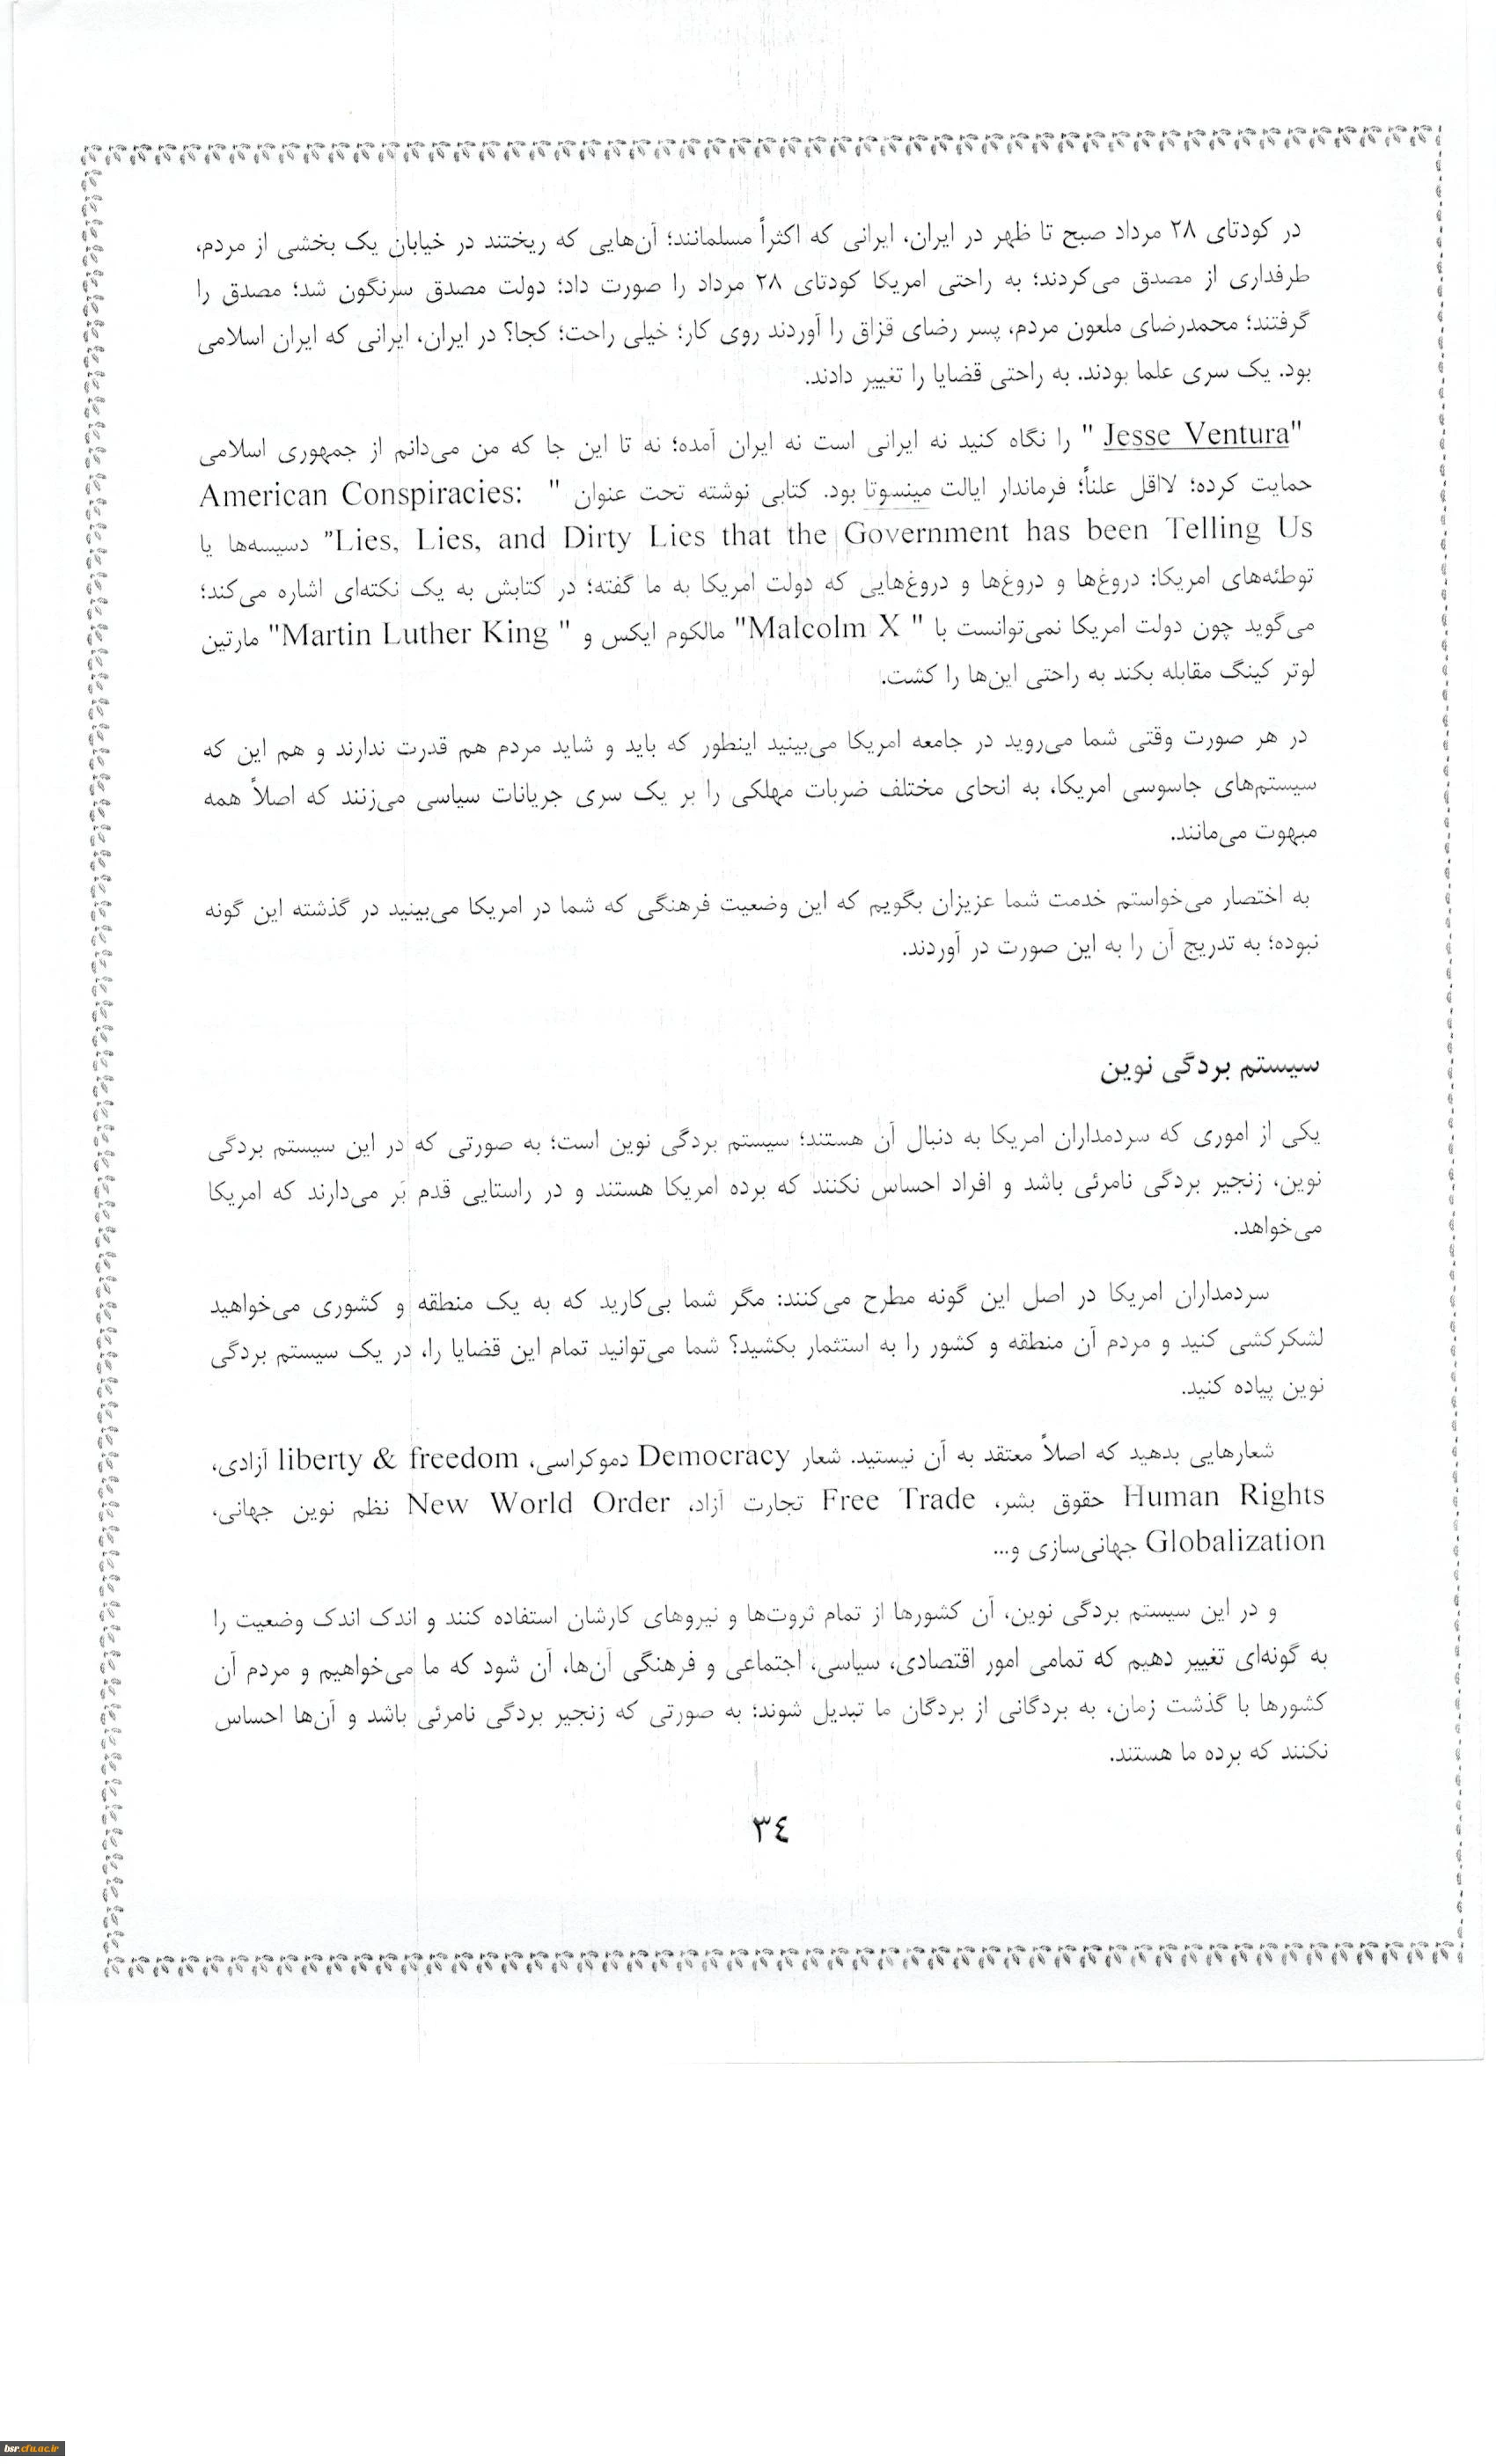 در کودتای ۲۸ مرداد صبح تا ظهر در ایران، ایرانی که اکثراً مسلمانند؛ آن‌هایی که ریختند در خیابان یک بخشی از مردم،
طرفداری از مصدق می‌کردند؛ به راحتی امریکا کودتای ۲۸ مرداد را صورت داد؛ دولت مصدق سرنگون شد؛ مصدق را
گرفتند؛ محمدرضای ملعون مردم، پسر رضای قزاق را آوردند روی کار؛ خیلی راحت؛ کجا؟ در ایران، ایرانی که ایران اسلامی
بود. یک سری علما بودند. به راحتی قضایا را تغییر دادند.
"Jesse Ventura " را نگاه کنید نه ایرانی است نه ایران آمده؛ نه تا این جا که من می‌دانم از جمهوری اسلامی
حمایت کرده؛ لااقل علناً؛ فرماندار ایالت مینسوتا بود. کتابی نوشته تحت عنوان " American Conspiracies:
Lies, Lies, and Dirty Lies that the Government has been Telling Us" دسیسه‌ها یا
توطئه‌های امریکا: دروغ‌ها و دروغ‌ها و دروغ‌هایی که دولت امریکا به ما گفته؛ در کتابش به یک نکته‌ای اشاره می‌کند؛
می‌گوید چون دولت امریکا نمی‌توانست با " Malcolm X" مالکوم ایکس و " Martin Luther King" مارتین
لوتر کینگ مقابله بکند به راحتی این‌ها را کشت.
در هر صورت وقتی شما می‌روید در جامعه امریکا می‌بینید اینطور که باید و شاید مردم هم قدرت ندارند و هم این که
سیستم‌های جاسوسی امریکا، به انحای مختلف ضربات مهلکی را بر یک سری جریانات سیاسی می‌زنند که اصلاً همه
مبهوت می‌مانند.
به اختصار می‌خواستم خدمت شما عزیزان بگویم که این وضعیت فرهنگی که شما در امریکا می‌بینید در گذشته این گونه
نبوده؛ به تدریج آن را به این صورت در آوردند.
سیستم بردگی نوین
یکی از اموری که سردمداران امریکا به دنبال آن هستند؛ سیستم بردگی نوین است؛ به صورتی که در این سیستم بردگی
نوین، زنجیر بردگی نامرئی باشد و افراد احساس نکنند که برده امریکا هستند و در راستایی قدم بَر می‌دارند که امریکا
می‌خواهد.
سردمداران امریکا در اصل این گونه مطرح می‌کنند: مگر شما بی‌کارید که به یک منطقه و کشوری می‌خواهید
لشکرکشی کنید و مردم آن منطقه و کشور را به استثمار بکشید؟ شما می‌توانید تمام این قضایا را، در یک سیستم بردگی
نوین پیاده کنید.
شعارهایی بدهید که اصلاً معتقد به آن نیستید. شعار Democracy دموکراسی، liberty & freedom آزادی،
Human Rights حقوق بشر، Free Trade تجارت آزاد، New World Order نظم نوین جهانی،
Globalization جهانی‌سازی و...
و در این سیستم بردگی نوین، آن کشورها از تمام ثروت‌ها و نیروهای کارشان استفاده کنند و اندک اندک وضعیت را
به گونه‌ای تغییر دهیم که تمامی امور اقتصادی، سیاسی، اجتماعی و فرهنگی آن‌ها، آن شود که ما می‌خواهیم و مردم آن
کشورها با گذشت زمان، به بردگانی از بردگان ما تبدیل شوند؛ به صورتی که زنجیر بردگی نامرئی باشد و آن‌ها احساس
نکنند که برده ما هستند.
٣٤
bsr.cfu.ac.ir